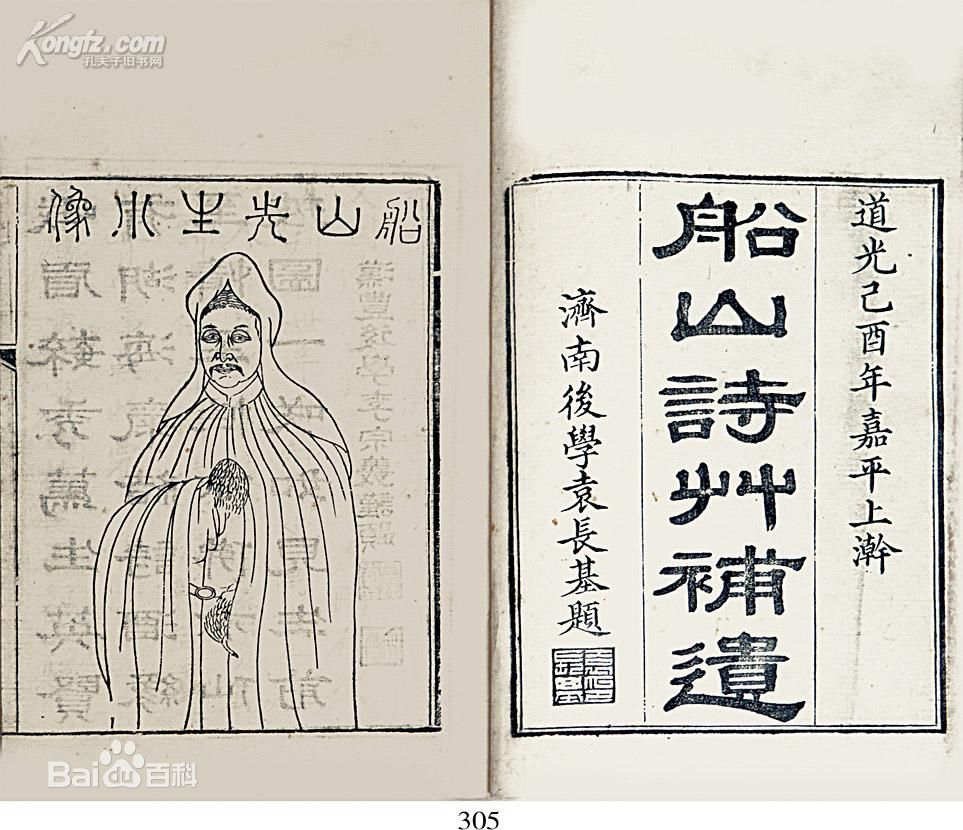 Kongfz.com
孔夫子旧书网
道光己酉年嘉平上澣
船山詩艸補遺
濟南後學袁長基題
船山先生小像
Bai百科
305